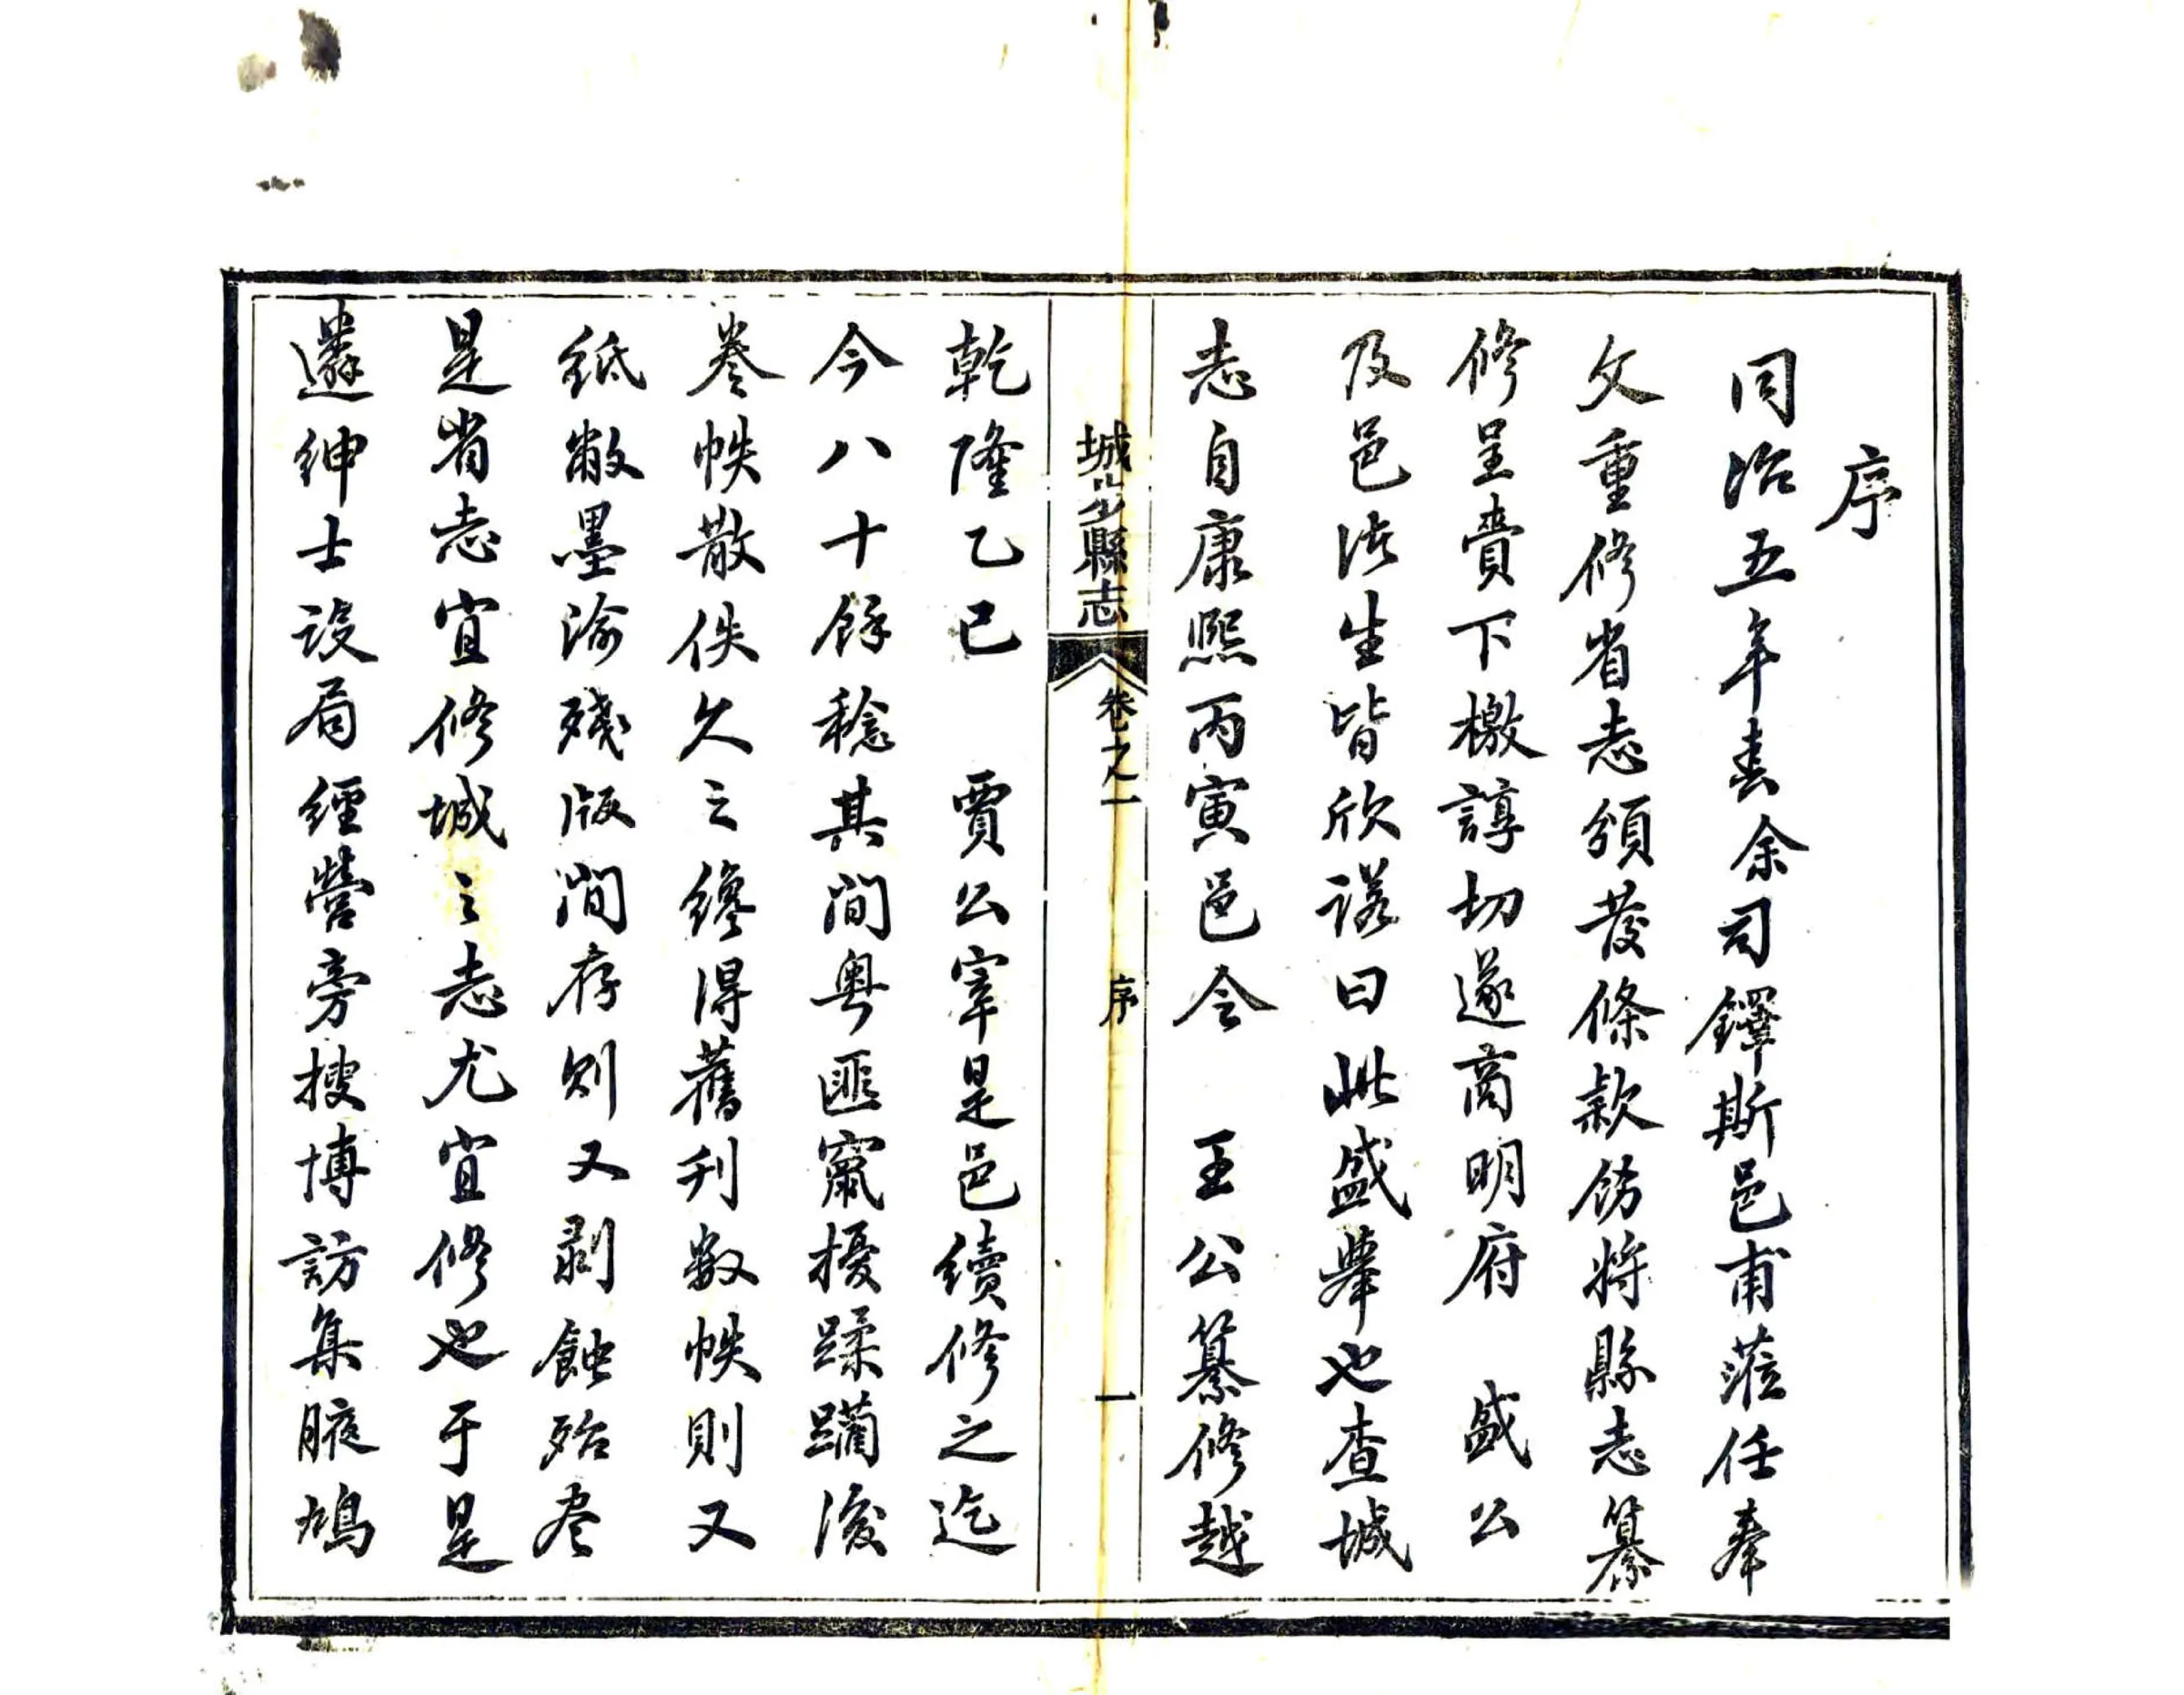 序
同治五年春余司鐸斯邑甫蒞任奉
文重修省志頒發條款飭將縣志纂
修呈賫下檄諄切遂商明府　盛公
及邑諸生皆欣諾曰此盛舉也查城
志自康熙丙寅邑令　王公纂修越
城步縣志　卷之一　序　一
乾隆乙巳　賈公宰是邑續修之迄
今八十餘稔其間粵匪竄擾蹂躪後
卷帙散佚久之纔得舊刋數帙則又
紙敝墨渝殘版間存則又剥蝕殆盡
是省志宜修城之志尤宜修也于是
遴紳士設局經營旁搜博訪集腋鳩